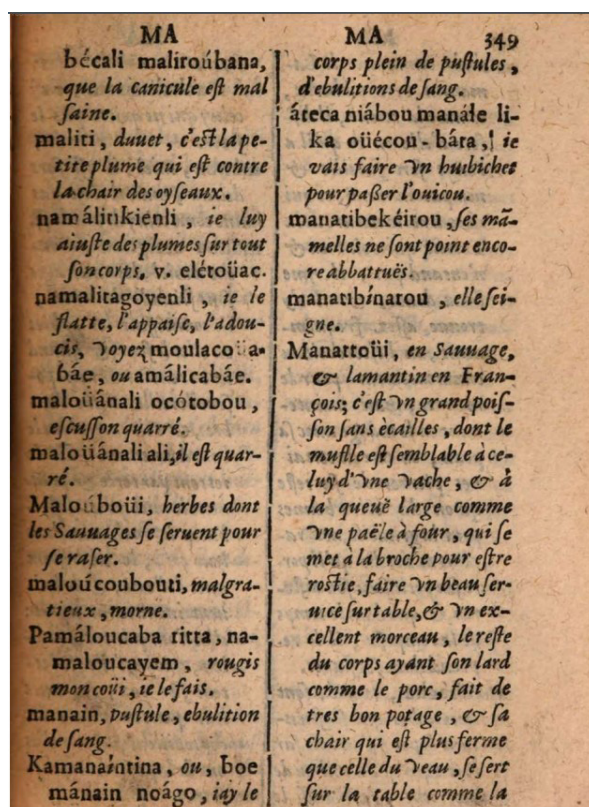 MA
bécali maliroúbana,
que la canicule est mal
saine.
maliti, duuet, c'est la pe-
tite plume qui est contre
la chair des oyseaux.
namálinkienli, ie luy
aiuste des plumes sur tout
son corps, v. elétoüac.
namalitagoyenli, ie le
flatte, l'appaise, l'adou-
cis, voyez moulaco a-
báe, ou amálicabáe.
maloüánali ocótobou,
escusson quarré.
maloüánali ali, il est quar-
ré.
Maloúboüi, herbes dont
les Sauuages se seruent pour
se raser.
maloúcoubouti, malgra-
tieux, morne.
Pamáloucaba titta, na-
maloucayem, rougis
mon coüi, ie le fais.
manain, pustule, ebulition
de sang.
Kamanaintina, ou, boe
mánain noágo, i'ay le
MA 349
corps plein de pustules,
d'ebulitions de sang.
áteca niábou manále li-
ka oüécou-bára, ie
vais faire vn huibichet
pour passer l'ouicou.
manatibekéirou, ses mã-
melles ne sont point enco-
re abbattuës.
manatibínarou, elle sei-
gne.
Manattoüi, en Sauuage,
& lamantin en Fran-
çois; c'est vn grand pois-
son sans écailles, dont le
muflle est semblable à ce-
luy d'vne vache, & à
la queuë large comme
vne paële à four, qui se
met à la broche pour estre
rostie, faire vn beau ser-
uice sur table, & vn ex-
cellent morceau, le reste
du corps ayant son lard
comme le porc, fait de
tres bon potage, & sa
chair qui est plus ferme
que celle du veau, se sert
sur la table comme la